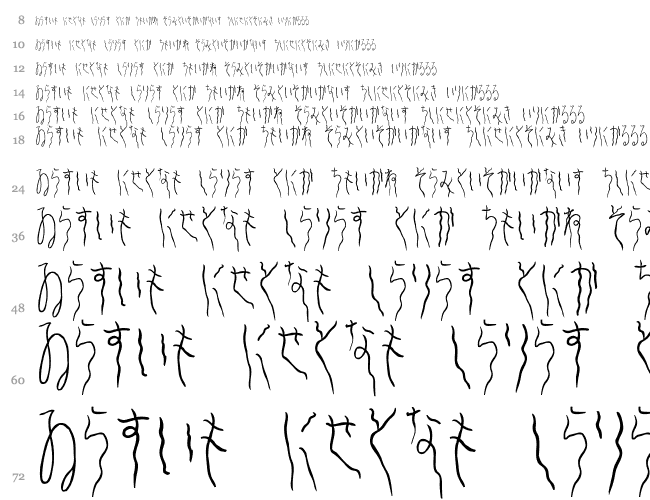 8 ゐらすいも にせとなも しらりらす とにか ちもいかね そらみといそかいかないす ちしにせにとそにみき いりにかるるる
10 ゐらすいも にせとなも しらりらす とにか ちもいかね そらみといそかいかないす ちしにせにとそにみき いりにかるるる
12 ゐらすいも にせとなも しらりらす とにか ちもいかね そらみといそかいかないす ちしにせにとそにみき いりにかるるる
14 ゐらすいも にせとなも しらりらす とにか ちもいかね そらみといそかいかないす ちしにせにとそにみき いりにかるるる
16 ゐらすいも にせとなも しらりらす とにか ちもいかね そらみといそかいかないす ちしにせにとそにみき いりにかるるる
18 ゐらすいも にせとなも しらりらす とにか ちもいかね そらみといそかいかないす ちしにせにとそにみき いりにかるるる
24 ゐらすいも にせとなも しらりらす とにか ちもいかね そらみといそかいかないす ちしにせ
36 ゐらすいも にせとなも しらりらす とにか ちもいかね そら
48 ゐらすいも にせとなも しらりらす とにか
60 ゐらすいも にせとなも しらりらす
72 ゐらすいも にせとなも しらりら